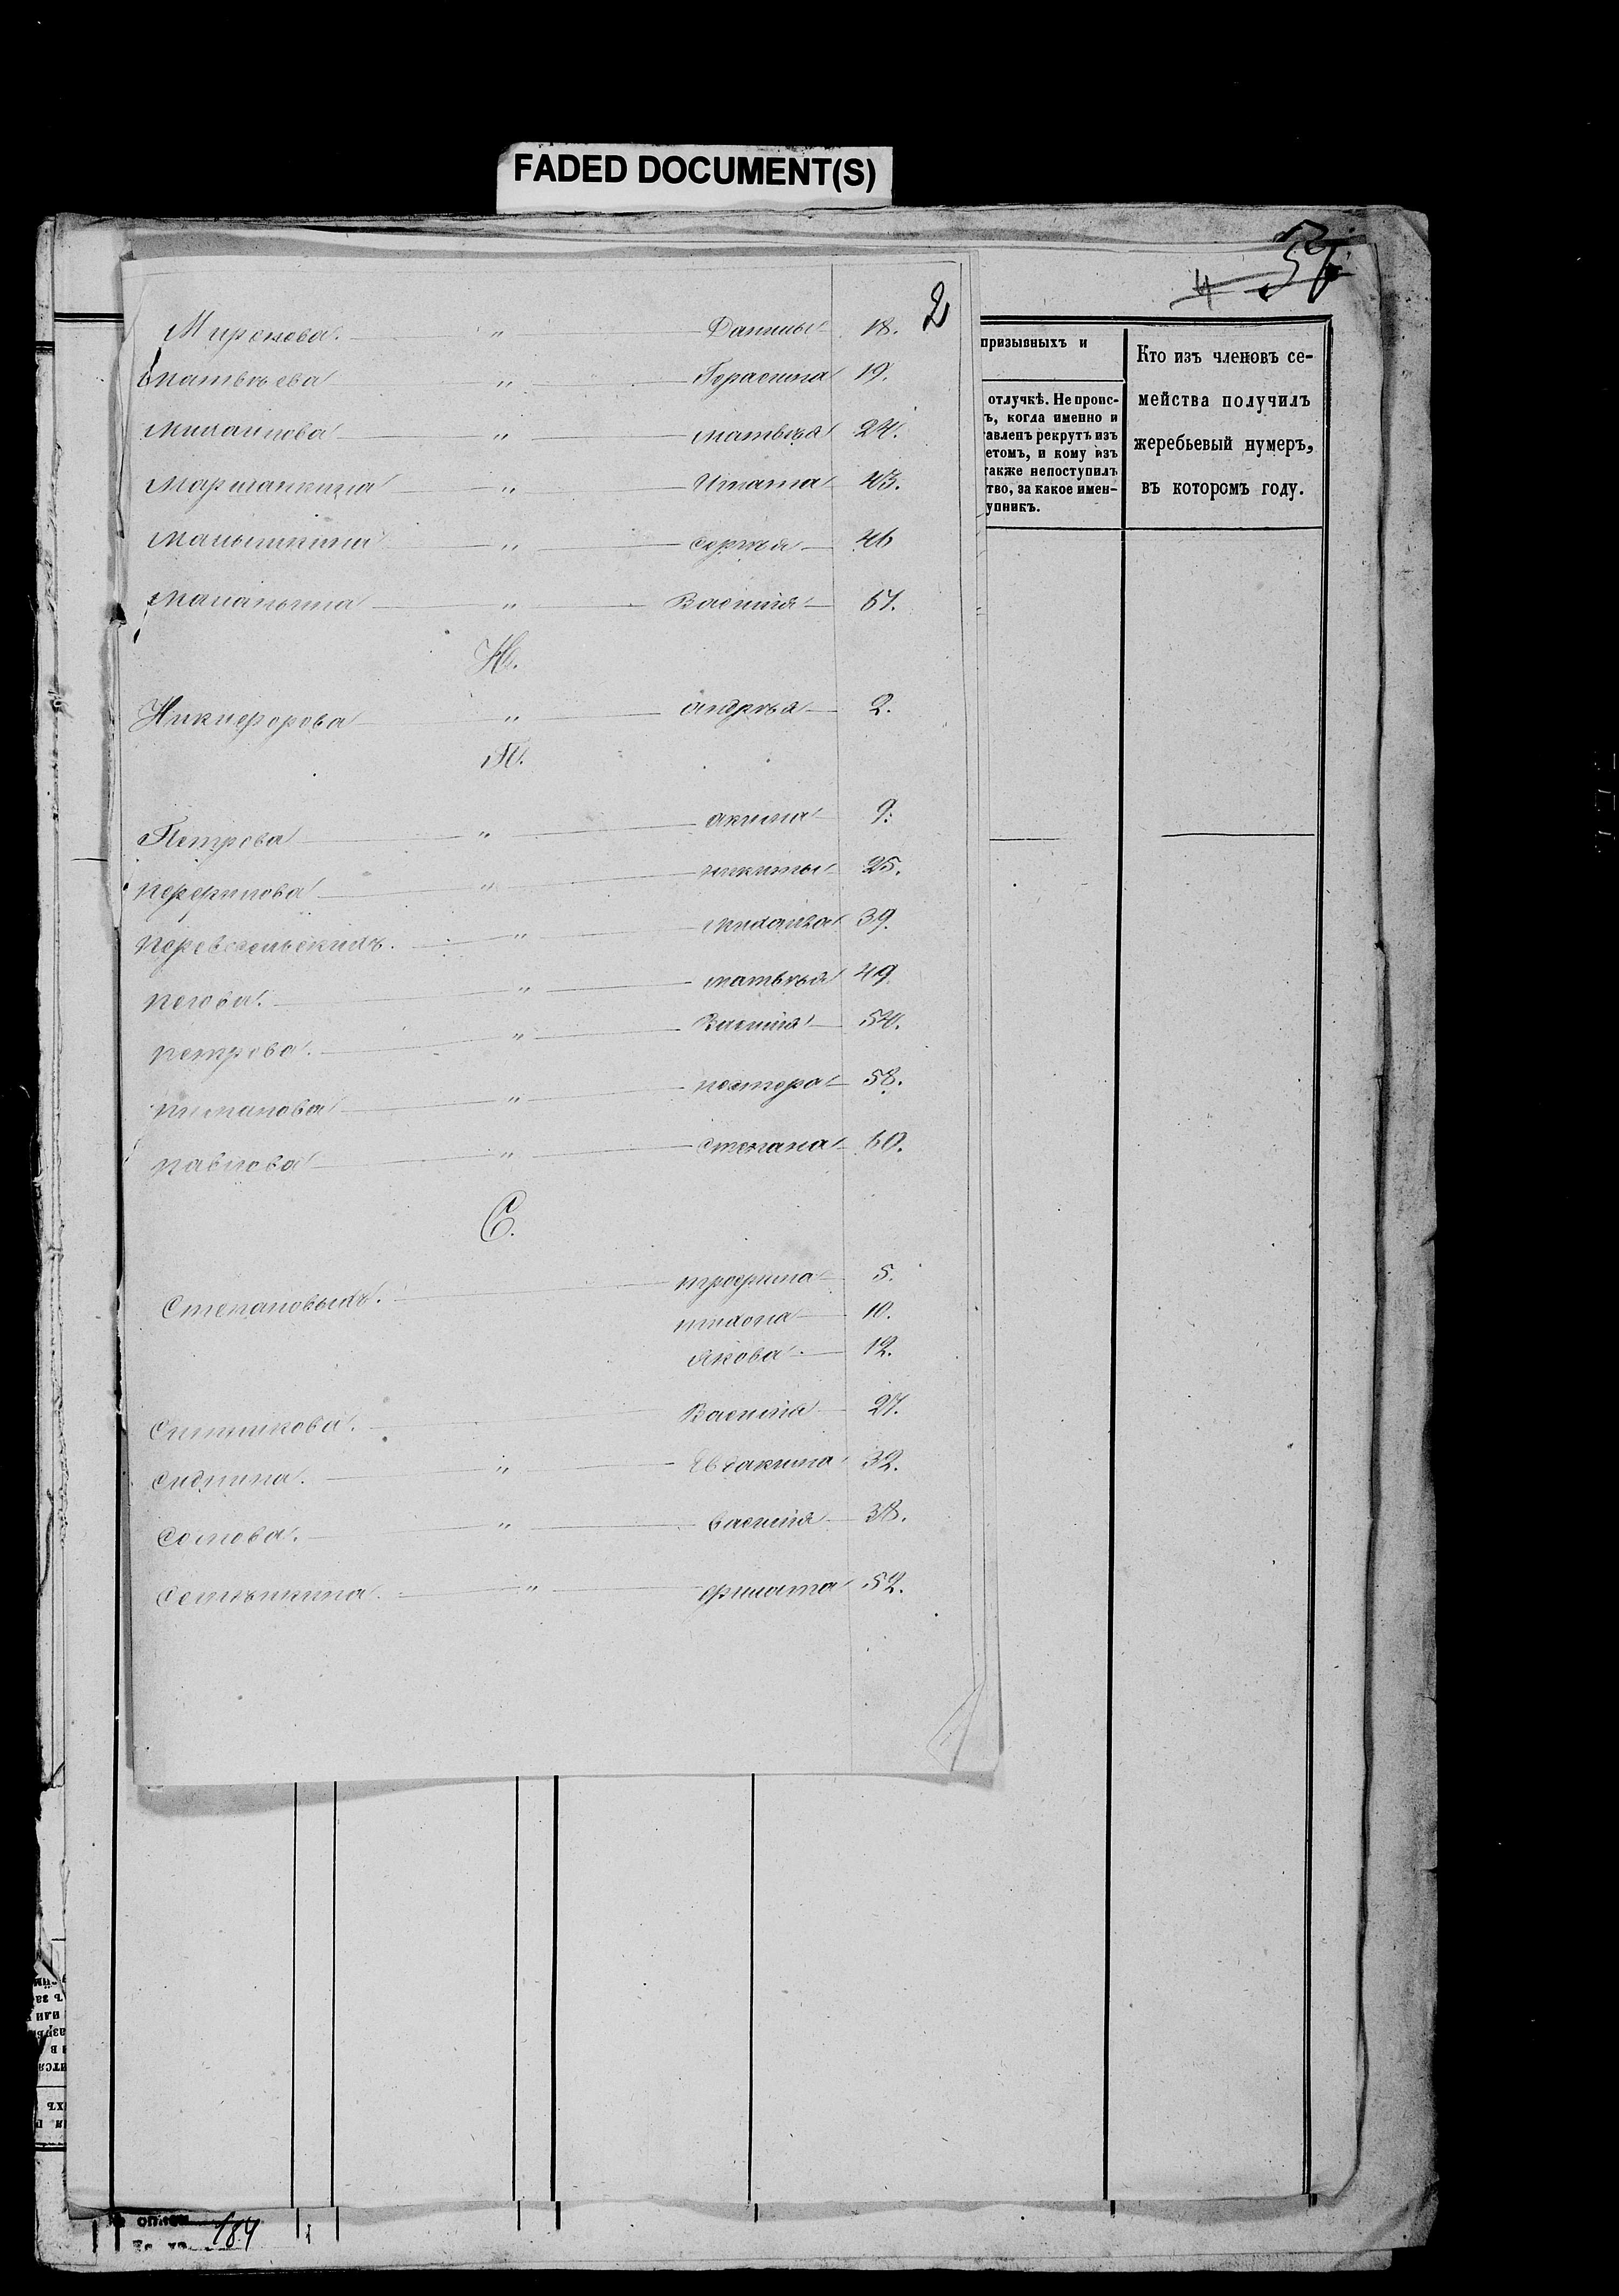 FADED DOCUMENT(S)
57
4
2
Миронова. „ Данилы 18.
Матвѣева „ Герасима 19.
Михайлова „ Матвѣя 24.
Маршанкина „ Игната 43.
Малышкина „ Сергѣя 46
Маланьина „ Василія 61.
Н.
Никифорова „ Андрѣя 2.
П.
Петрова „ Акима 9.
Перфилова „ Никиты 25.
Перевесельскихъ. „ Михайла 39.
Пегова. „ Матвѣя 49
Петрова. „ Василія 54.
„ Нестера 58.
Павлова „ Степана 60.
С.
Степановыхъ. Трофима 5.
Тихона 10.
Якова 12.
Ситникова. Василія 27.
Сиднина. „ Евдакима 32.
Сомова. „ Василія 38.
Сетышкина. „ Филата 52.
призывныхъ и
отлучкѣ. Не проис-
ъ, когда именно и
тавленъ рекрутъ изъ
етомъ, и кому изъ
также непоступилъ
тво, за какое имен-
упникъ.
Кто изъ членовъ се-
мейства получилъ
жеребьевый нумеръ,
въ которомъ году.
184